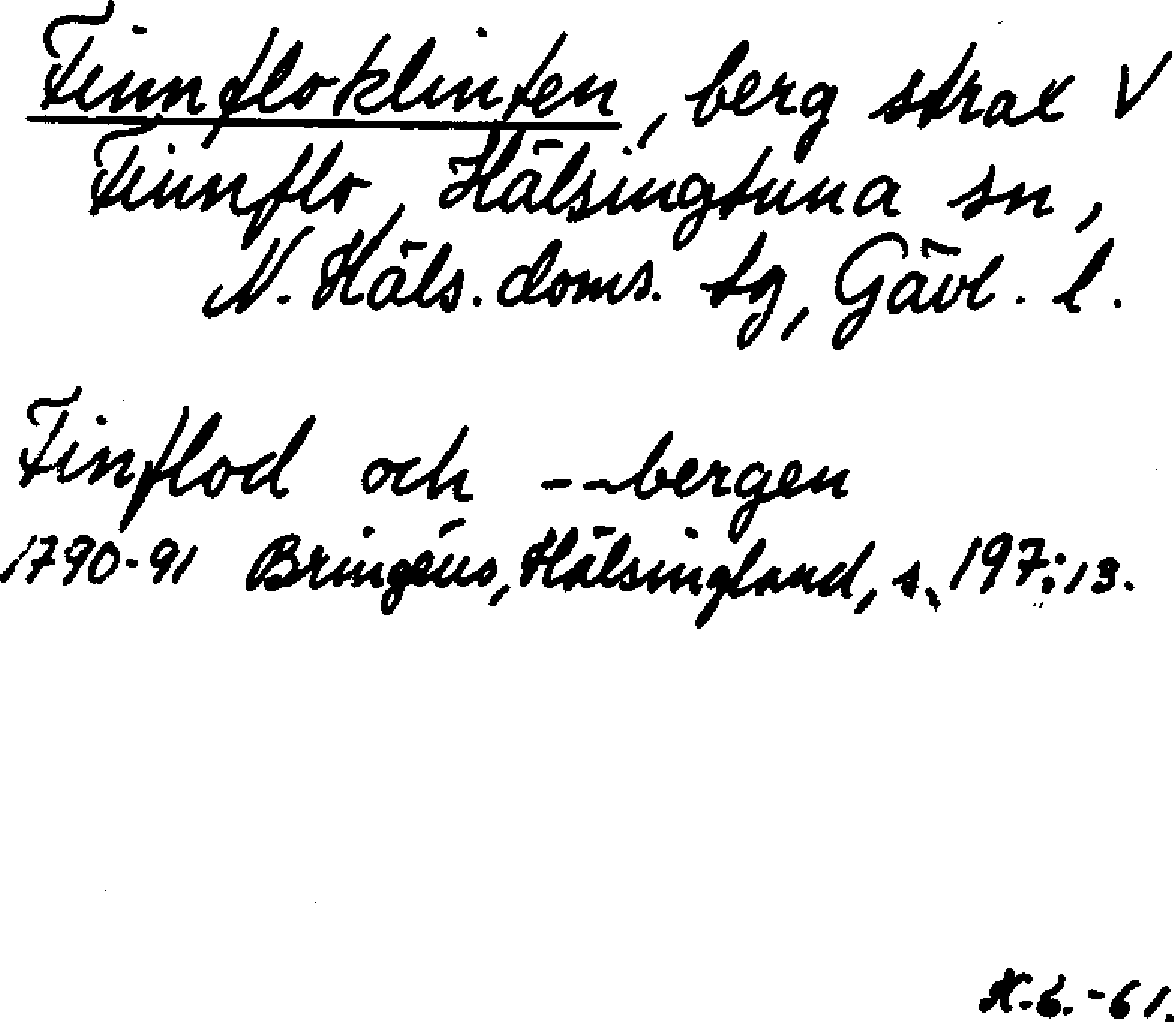 Finnfloklinten, berg strax V
Finnflo, Hälsingtuna sn,
N. Häls. doms. tg, Gävl. l.
Finflod och --bergen
1790-91 Bringéus, Hälsingland, s. 197:13.
-61.